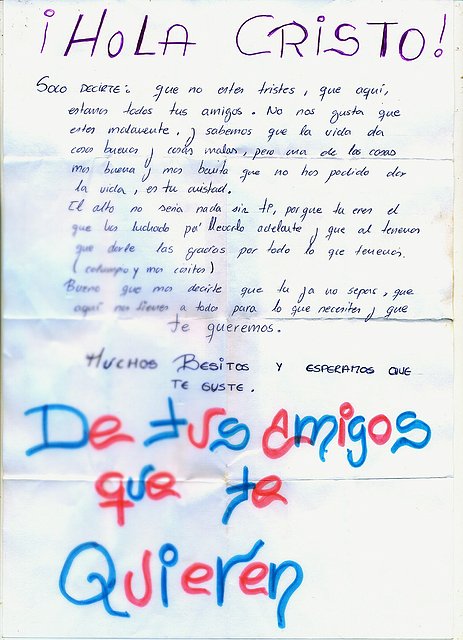 ¡HOLA CRISTO!
SOLO DECIRTE: que no estes tristes, que aquí,
estamos todos tus amigos. No nos gusta que
estes malamente, y sabemos que la vida da
cosas buenas y cosas malas, pero una de las cosas
mas buena y mas bonita que no has podido dar
la vida, es tu amistad.
El alto no seria nada sin ti, porque tu eres el
que has luchado pa' llevarlo adelante y que al tenemos
que darle las gracias por todo lo que tenemos.
(columpio y mas cositas)
Bueno que mas decirte que tu ya no sepas, que
aquí nos tienes a todos para lo que necesites y que
te queremos.
MUCHOS BESITOS Y ESPERAMOS QUE
TE GUSTE.
De tus amigos
que te
Quieren